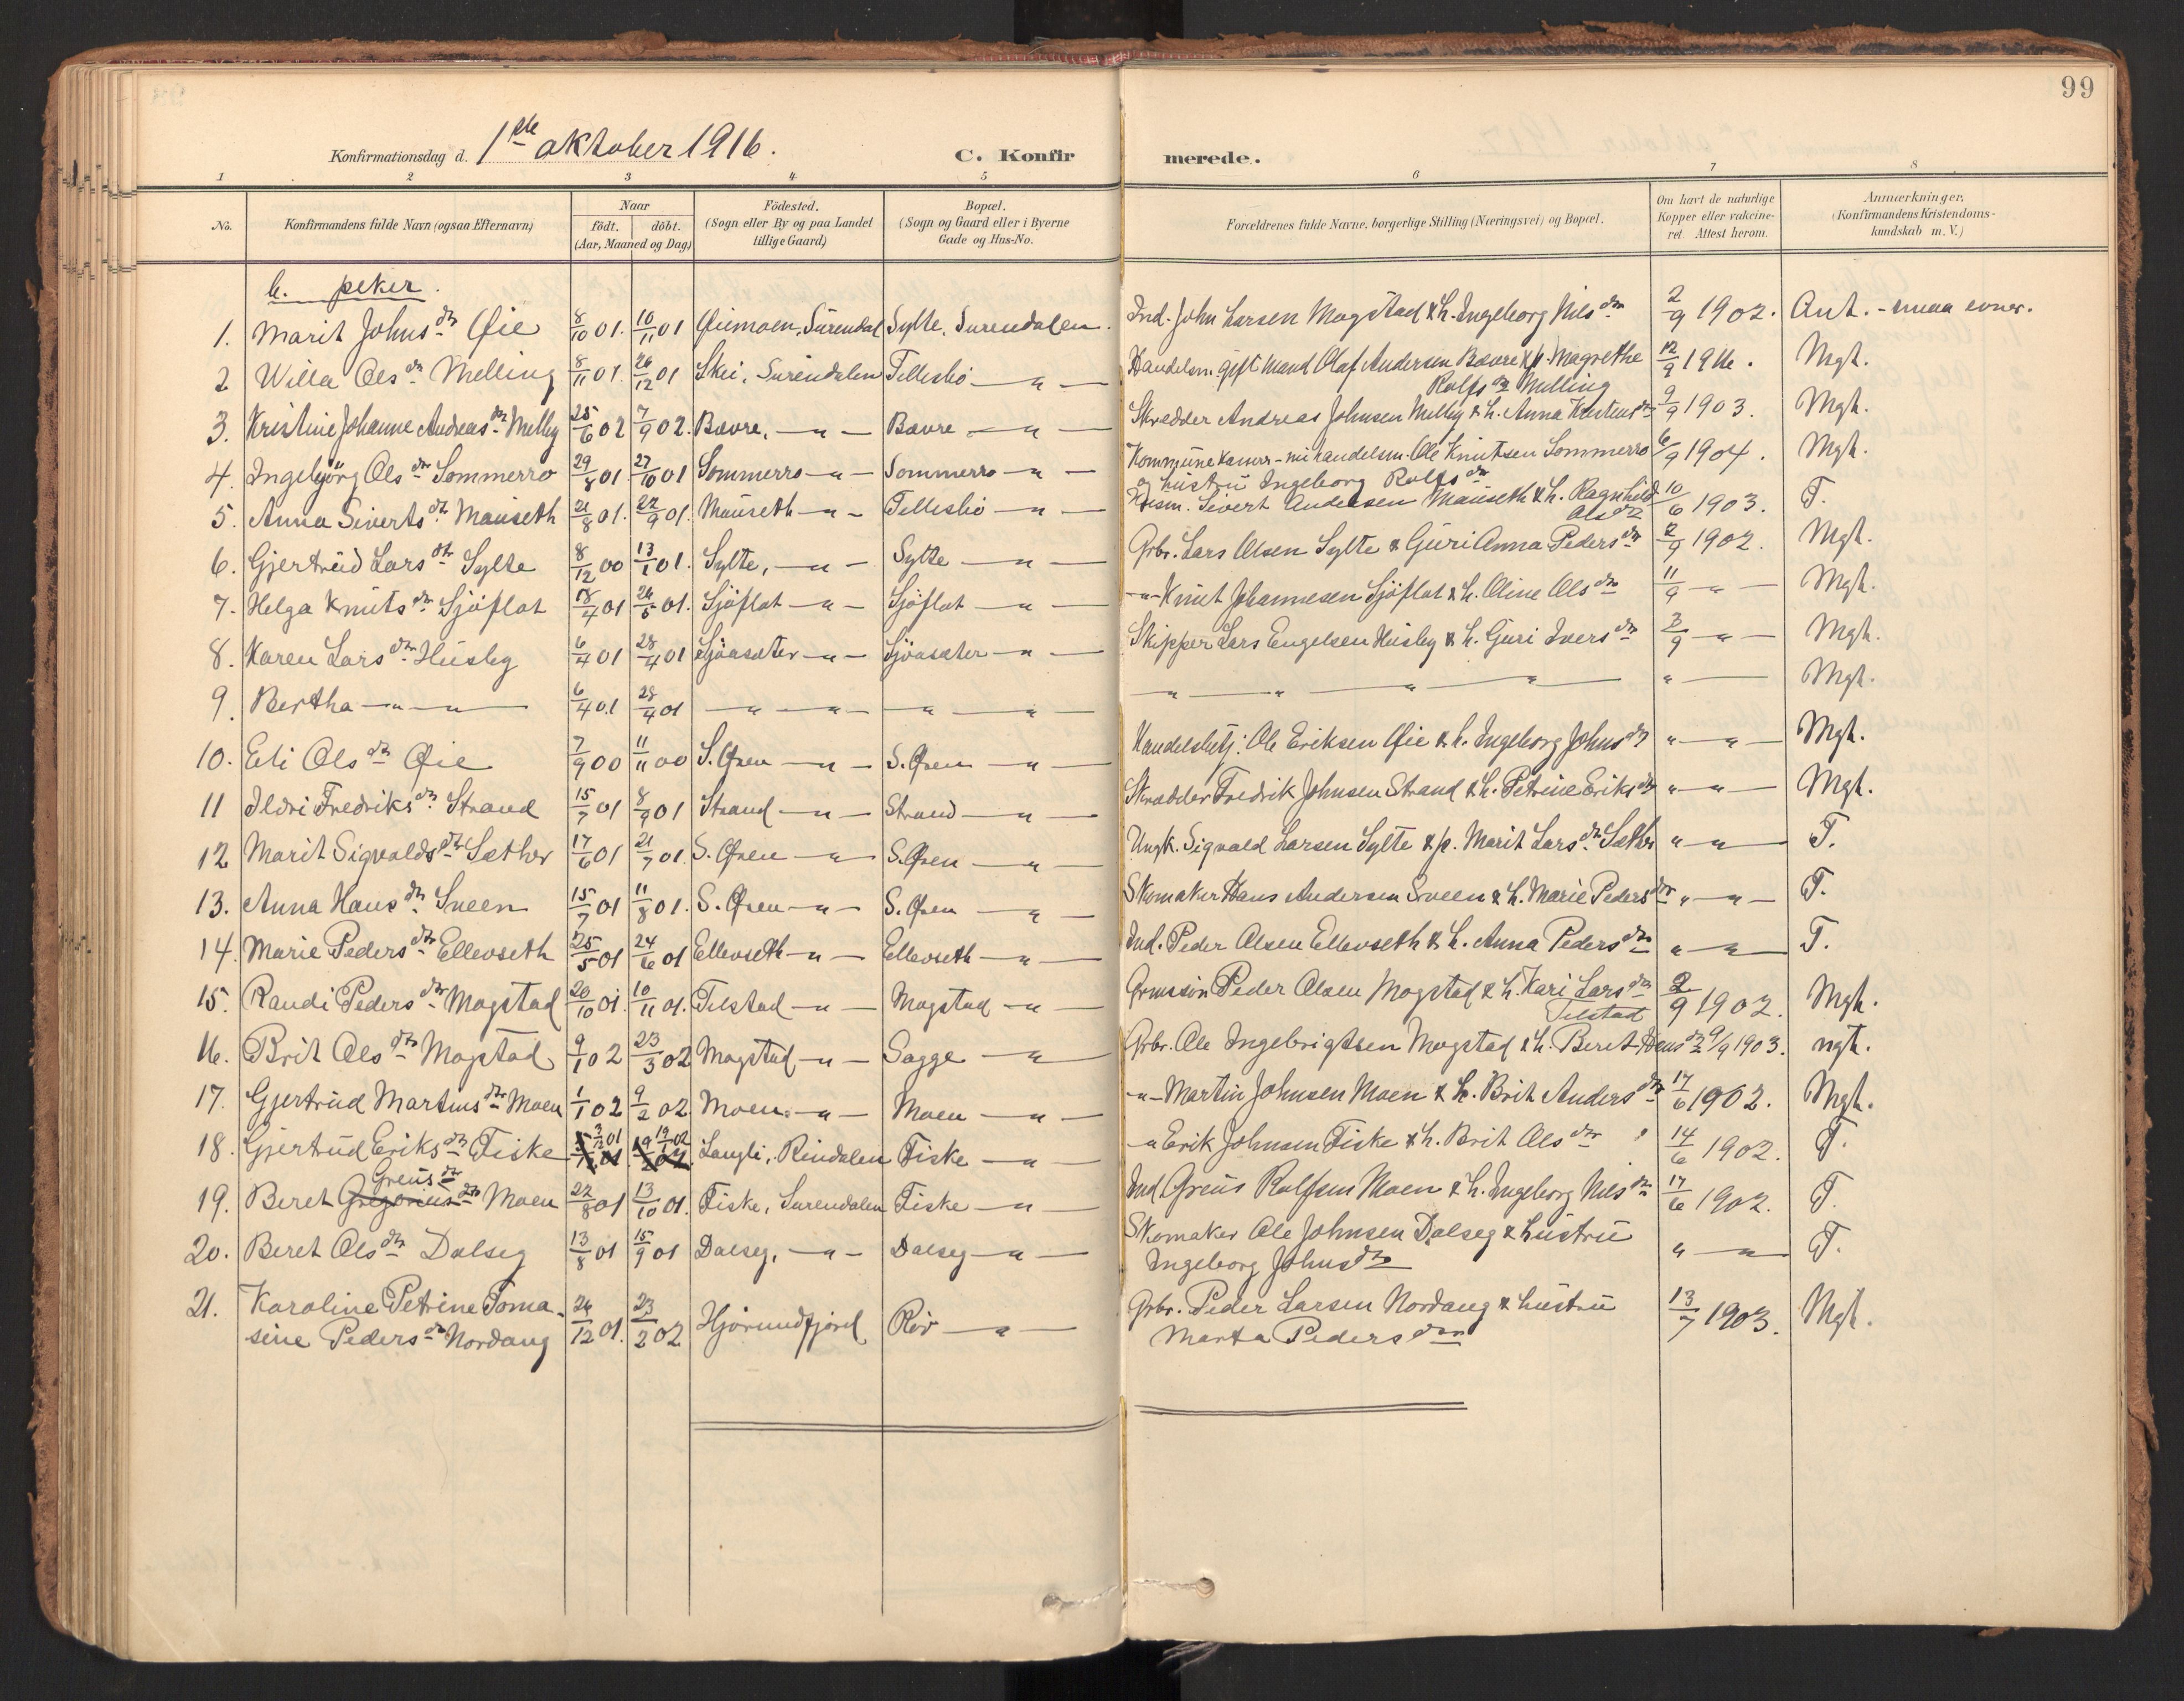 99
Konfirmationsdag d. 1ste oktober 1916.
C. Konfirmerede.
1 2 3 4 5 6 7 8
No.
Konfirmandens fulde Navn (ogsaa Efternavn)
Naar
født. døbt.
(Aar, Maaned og Dag)
Födested.
(Sogn eller By og paa Landet
tillige Gaard)
Bopæl.
(Sogn og Gaard eller i Byerne
Gade og Hus-No.
Forældrenes fulde Navne, borgerlige Stilling (Næringsvei) og Bopæl.
Om havt de naturlige
Kopper eller vakcine-
ret. Attest herom.
Anmærkninger,
(Konfirmandens Kristendoms-
kundskab m. V.)
b. piker.
1. Marit Johns dtr Øie 8/10 01. 10/11 01 Øiemoen, Surendal Sylte, Surendalen. Ind. John Larsen Mogstad & h. Ingeborg Nils dtr 2/9 1902. Ant. - smaa evner.
2 Willa Ols dtr Melling 8/11 01. 26/12 01 Skei, Surendalen Tellesbö — " — Handelsm. gift mand Olaf Andersen Bævre & p. Magrethe Rolfs dtr Melling 12/9 1916. Mgt.
3. Kristine Johanne Andreas dtr Melby 25/6 02 7/9 02. Bævre, — " — Bævre — " — Skrædder Andreas Johnsen Melby & h. Anna Kristens dtr 9/9 1903. Mgt.
4. Ingebjörg Ols dtr Sommerro 29/8 01. 27/10 01 Sommerro — " — Sommerro — " — Kommunekasser- mm handelsm. Ole Knutsen Sommerro
og hustru Ingeborg Rolfs dtr 6/9 1904. Mgt.
5. Anna Siverts dtr Mauseth 21/8 01. 22/9 01. Mauseth — " — Tellesbö — " — Husm. Sivert Andersen Mauseth & h. Ragnhild Ols dtr 10/6 1903. T.
6. Gjertrud Lars dtr Sylte 8/12 00 13/1 01. Sylte, — " — Sylte — " — Grbr. Lars Olsen Sylte & Guri Anna Peders dtr 2/9 1902. Mgt.
7. Helga Knuts dtr Sjöflot 18/4 01 26/5 01. Sjöflot — " — Sjöflot — " — — " — Knut Johannesen Sjöflot & h. Oline Ols dtr 11/9 — " — Mgt.
8. Karen Lars dtr Husby 6/4 01 28/4 01 Sjöasæter — " — Sjöasæter — " — Skipper Lars Engelsen Husby & h. Guri Ivers dtr 3/9 — " — Mgt.
9. Bertha — " — " — 6/4 01 28/4 01 — " — " — — " — " — — " — " — " — " — " — Mgt.
10. Eli Ols dtr Øie 7/9 00 11/11 00 S. Øren — " — S. Øren — " — Handelsbetj. Ole Eriksen Øie & h. Ingeborg Johns dtr " — " — Mgt.
11 Ildri Fredriks dtr Strand 15/7 01 8/9 01 Strand — " — Strand — " — Skrædder Fredrik Johnsen Strand & h. Petrine Eriks dtr " — " — Mgt.
12 Marit Sigvalds dtr Sæther 17/6 01 21/7 01. S. Øren — " — S. Øren — " — Ungk. Sigvald Larsen Sylte & p. Marit Lars dtr Sæther " — " — T.
13. Anna Hans dtr Sveen 15/7 01 11/8 01. S. Øren — " — S. Øren — " — Skomaker Hans Andersen Sveen & h. Marie Peders dtr " — " — T.
14. Marie Peders dtr Ellevseth 25/5 01 24/6 01 Ellevseth — " — Ellevseth — " — Ind. Peder Olsen Ellevseth & h. Anna Peders dtr " — " — T.
15. Randi Peders dtr Mogstad 20/10 01 10/11 01. Telstad — " — Mogstad — " — Grmssön Peder Olsen Mogstad & h. Kari Lars dtr Telstad 2/9 1902. Mgt.
16. Brit Ols dtr Mogstad 9/1 02 23/3 02 Mogstad — " — Sogge — " — Grbr. Ole Ingebrigtsen Mogstad & h. Beret Jens dtr 9/9 1903. ngt.
17. Gjertrud Martins dtr Moen 1/1 02 9/2 02. Moen — " — Moen — " — — " — Martin Johnsen Moen & h. Brit Anders dtr 17/6 1902. Mgt.
18. Gjertrud Eriks dtr Fiske 3/12 01 19/1 02 Langli, Rindalen Fiske — " — — " — Erik Johnsen Fiske & h. Brit Ols dtr " 14/6 1902. T.
19. Beret Gregorius dtr Greus dtr Moen 22/8 01 13/10 01. Fiske, Surendalen Fiske — " — Ind. Greus Rolfsen Moen & h. Ingeborg Nils dtr 17/6 1902. T.
20. Beret Ols dtr Dalseg 13/8 01 15/9 01 Dalseg, — " — Dalseg — " — Skomaker Ole Johnsen Dalseg & hustru
Ingeborg Johns dtr " — " — T.
21. Karoline Petrine Toma-
sine Peders dtr Nordang 26/12 01. 23/2 02 Hjörundfjord Röv — " — Grbr. Peder Larsen Nordang & hustru
Marta Peders dtr 13/7 1903. Mgt.